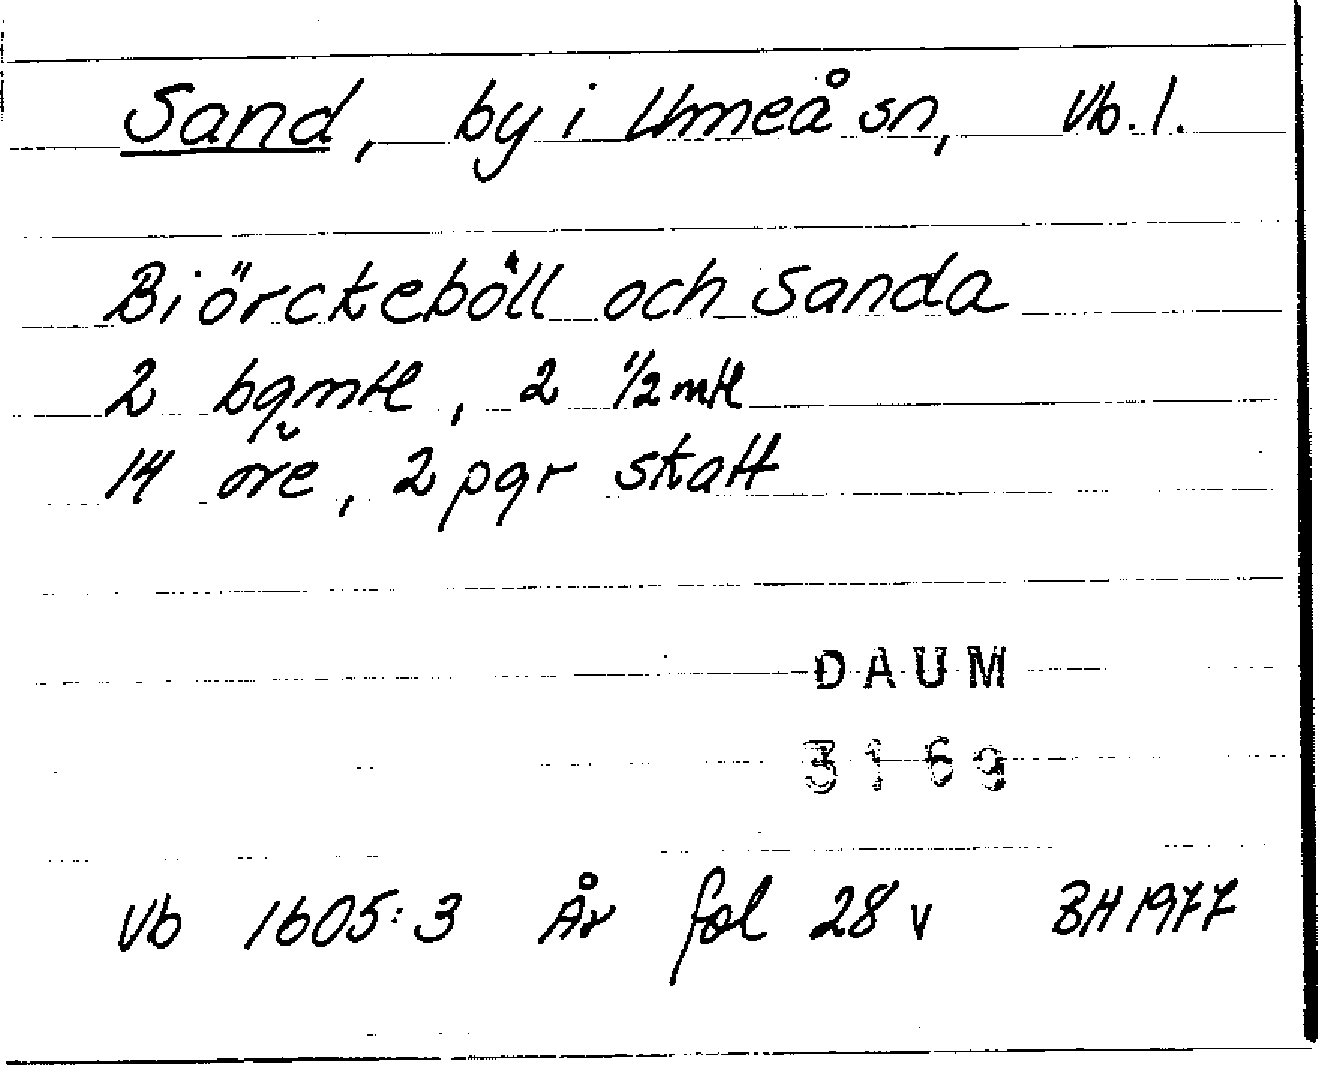 Sand, by i Umeå sn, Vb. l.
Biörckeböll och Sanda
2 bgmtl, 2 1/2 mtl
14 öre, 2 pgr skatt
DAUM
3169
Vb 1605:3 År fol 28 v BH 1977